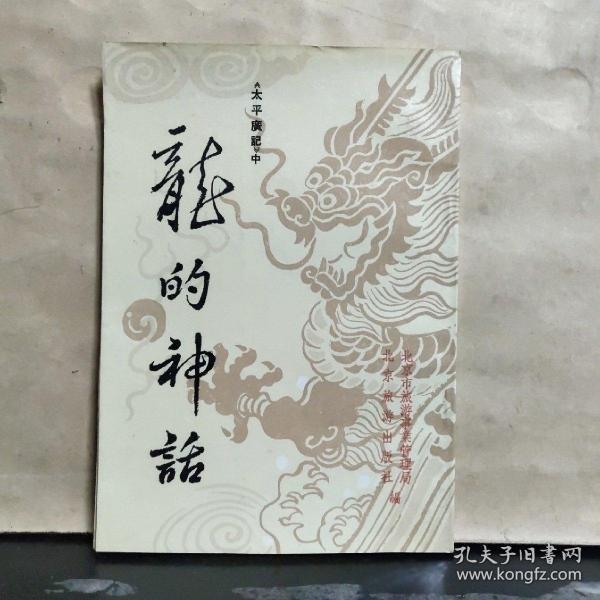 《太平廣記》中
龍的神話
北京市旅游事業管理局
北京旅游出版社 編
孔夫子旧書网
www.kongfz.com